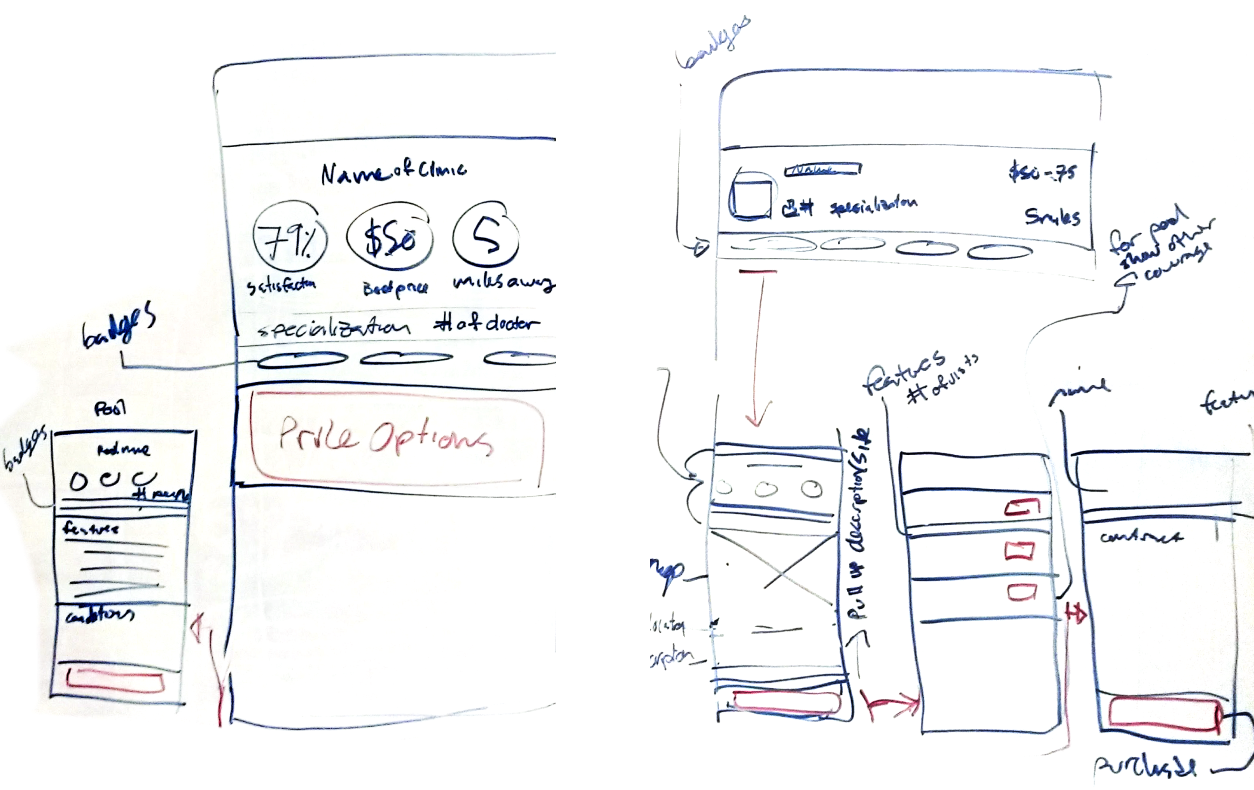 badges
Name of Clinic
79%
$50
5
satisfaction
Best price
miles away
specialization # of doctor
badges
Price Options
Pool
badges
# people
features
conditions
badges
Name
$50-75
# specialization
5 miles
for pool
show other
coverage
features
# of visits
name
featur
Pull up description/site
map
location
cription
contract
purchase